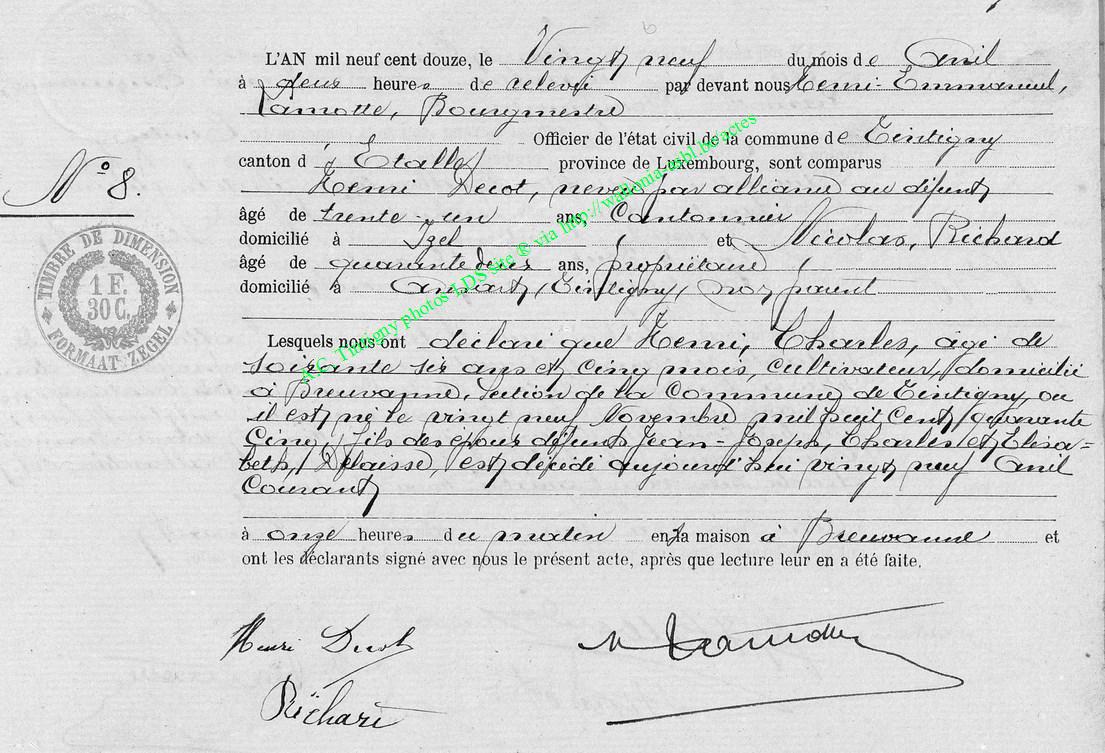 L'AN mil neuf cent douze, le Vingt neuf du mois de Avril
à deux heures de relevée par devant nous Henri-Emmanuel,
Lamotte, Bourgmestre
Officier de l'état civil de la commune de Tintigny
canton d'Etalle province de Luxembourg, sont comparus
N° 8.
Henri Decot, neveu par alliance au défunt
âgé de trente-un ans, Cantonnier
domicilié à Izel et Nicolas, Richard
âgé de quarante deux ans, propriétaire
domicilié à Ansart, (Tintigny) non parent
TIMBRE DE DIMENSION
1 F.
30 C.
FORMAAT-ZEGEL
A.C. Tintigny photos LDS site ® via http://wallonia-asbl.be/actes
Lesquels nous ont déclaré que Henri, Charles, âgé de
soixante six ans et cinq mois, cultivateur, domicilié
à Breuvanne, section de la Commune de Tintigny, où
il est né le vingt neuf Novembre mil huit cent quarante
cinq, fils des époux défunts Jean-Joseph, Charles et Elisa-
beth, Delaisse, est décédé aujourd'hui vingt neuf Avril
courant
à onze heures du matin en sa maison à Breuvanne et
ont les déclarants signé avec nous le présent acte, après que lecture leur en a été faite.
Henri Decot
Richard
Lamotte